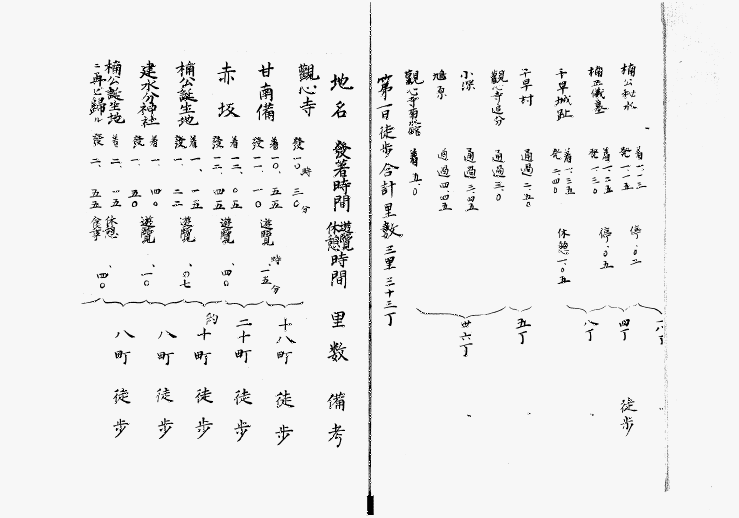 楠公秘水 着一、一三 停、〇二
發一、一五
楠正儀墓 着一、二五 停、〇五
發一、三〇
千早城趾 着一、三五 休憩一、〇五
發二、四〇
千早村 通過二、五〇
觀心寺追分 通過三、〇
小深 通過三、四五
鳩原 通過四、四五
觀心寺 着五、〇
四丁 徒步
八丁
五丁
廿六丁
第一日徒步合計里數 三里三十三丁
地名 發着時間 遊覽休憩時間 里數 備考
觀心寺 發一〇時三〇分
甘南備 着一〇、五五 遊覽 時、一五分
發一一、一〇
赤坂 着一二、〇五 遊覽 、四〇
發一二、四五
楠公誕生地 着一、一五 遊覽 、〇七
發一、二二
建水分神社 着一、四〇 遊覽 、一〇
發一、五〇
楠公誕生地ニ再ビ歸ル 着二、一五 休憩食事 、四〇
發二、五五
十八町 徒步
二十町 徒步
約十町 徒步
八町 徒步
八町 徒步